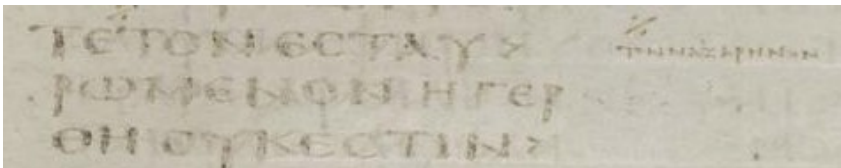 ΤΕΤΟΝΕϹΤΑΥ> ΤΟΝΝΑΖΑΡΗΝΟΝ
ΡΩΜΕΝΟΝΗΓΕΡ
ΘΗΟΥΚΕϹΤΙΝ>